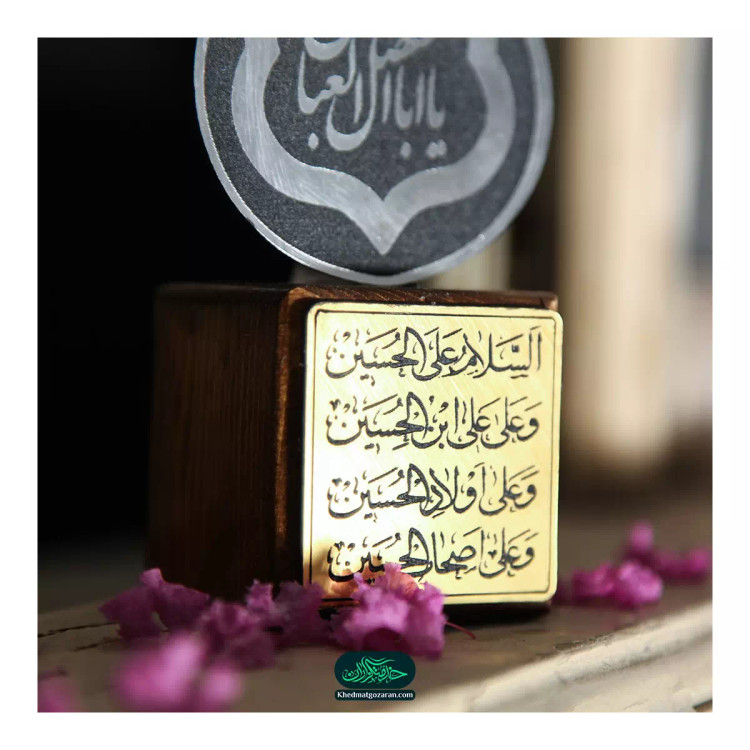 یا ابا الفضل العباس
اَلسَّلامُ عَلَی الحُسَین
وَعَلی عَلی ابنِ الحُسَین
وَعَلی اَولادِ الحُسَین
وَعَلی اَصحاب الحُسَین
خدمتگزاران
Khedmatgozaran.com